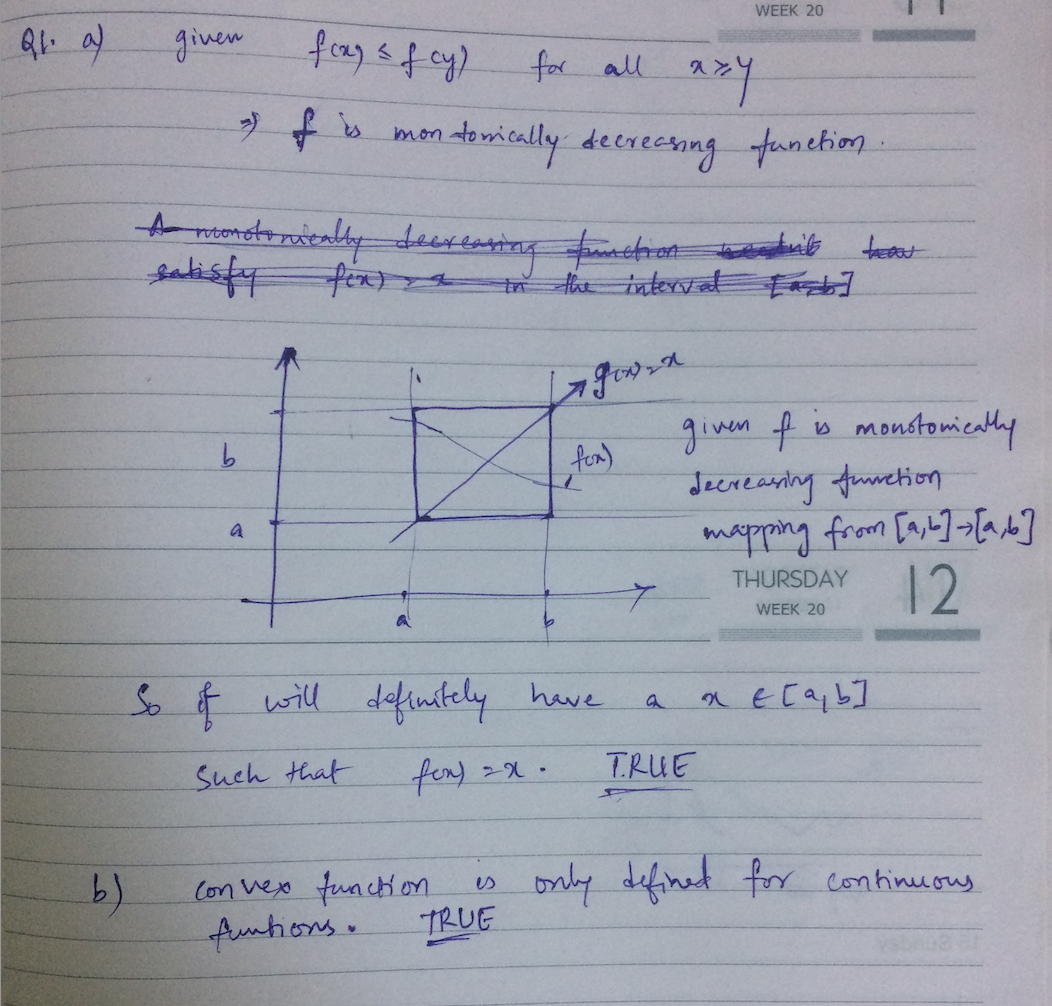 WEEK 20
11
Q1. a) given f(x) ≤ f(y) for all x ≥ y
⇒ f is montonically decreasing function.
A monotonically decreasing function
satisfy f(x) = x in the interval [a,b]
g(x) = x
given f is monotonically
b
f(x)
decreasing function
a
mapping from [a,b]→[a,b]
THURSDAY 12
WEEK 20
a b
So f will definitely have a x ∈ [a,b]
such that f(x) = x. TRUE
b) convex function is only defined for continuous
funtions. TRUE
15 Sunday